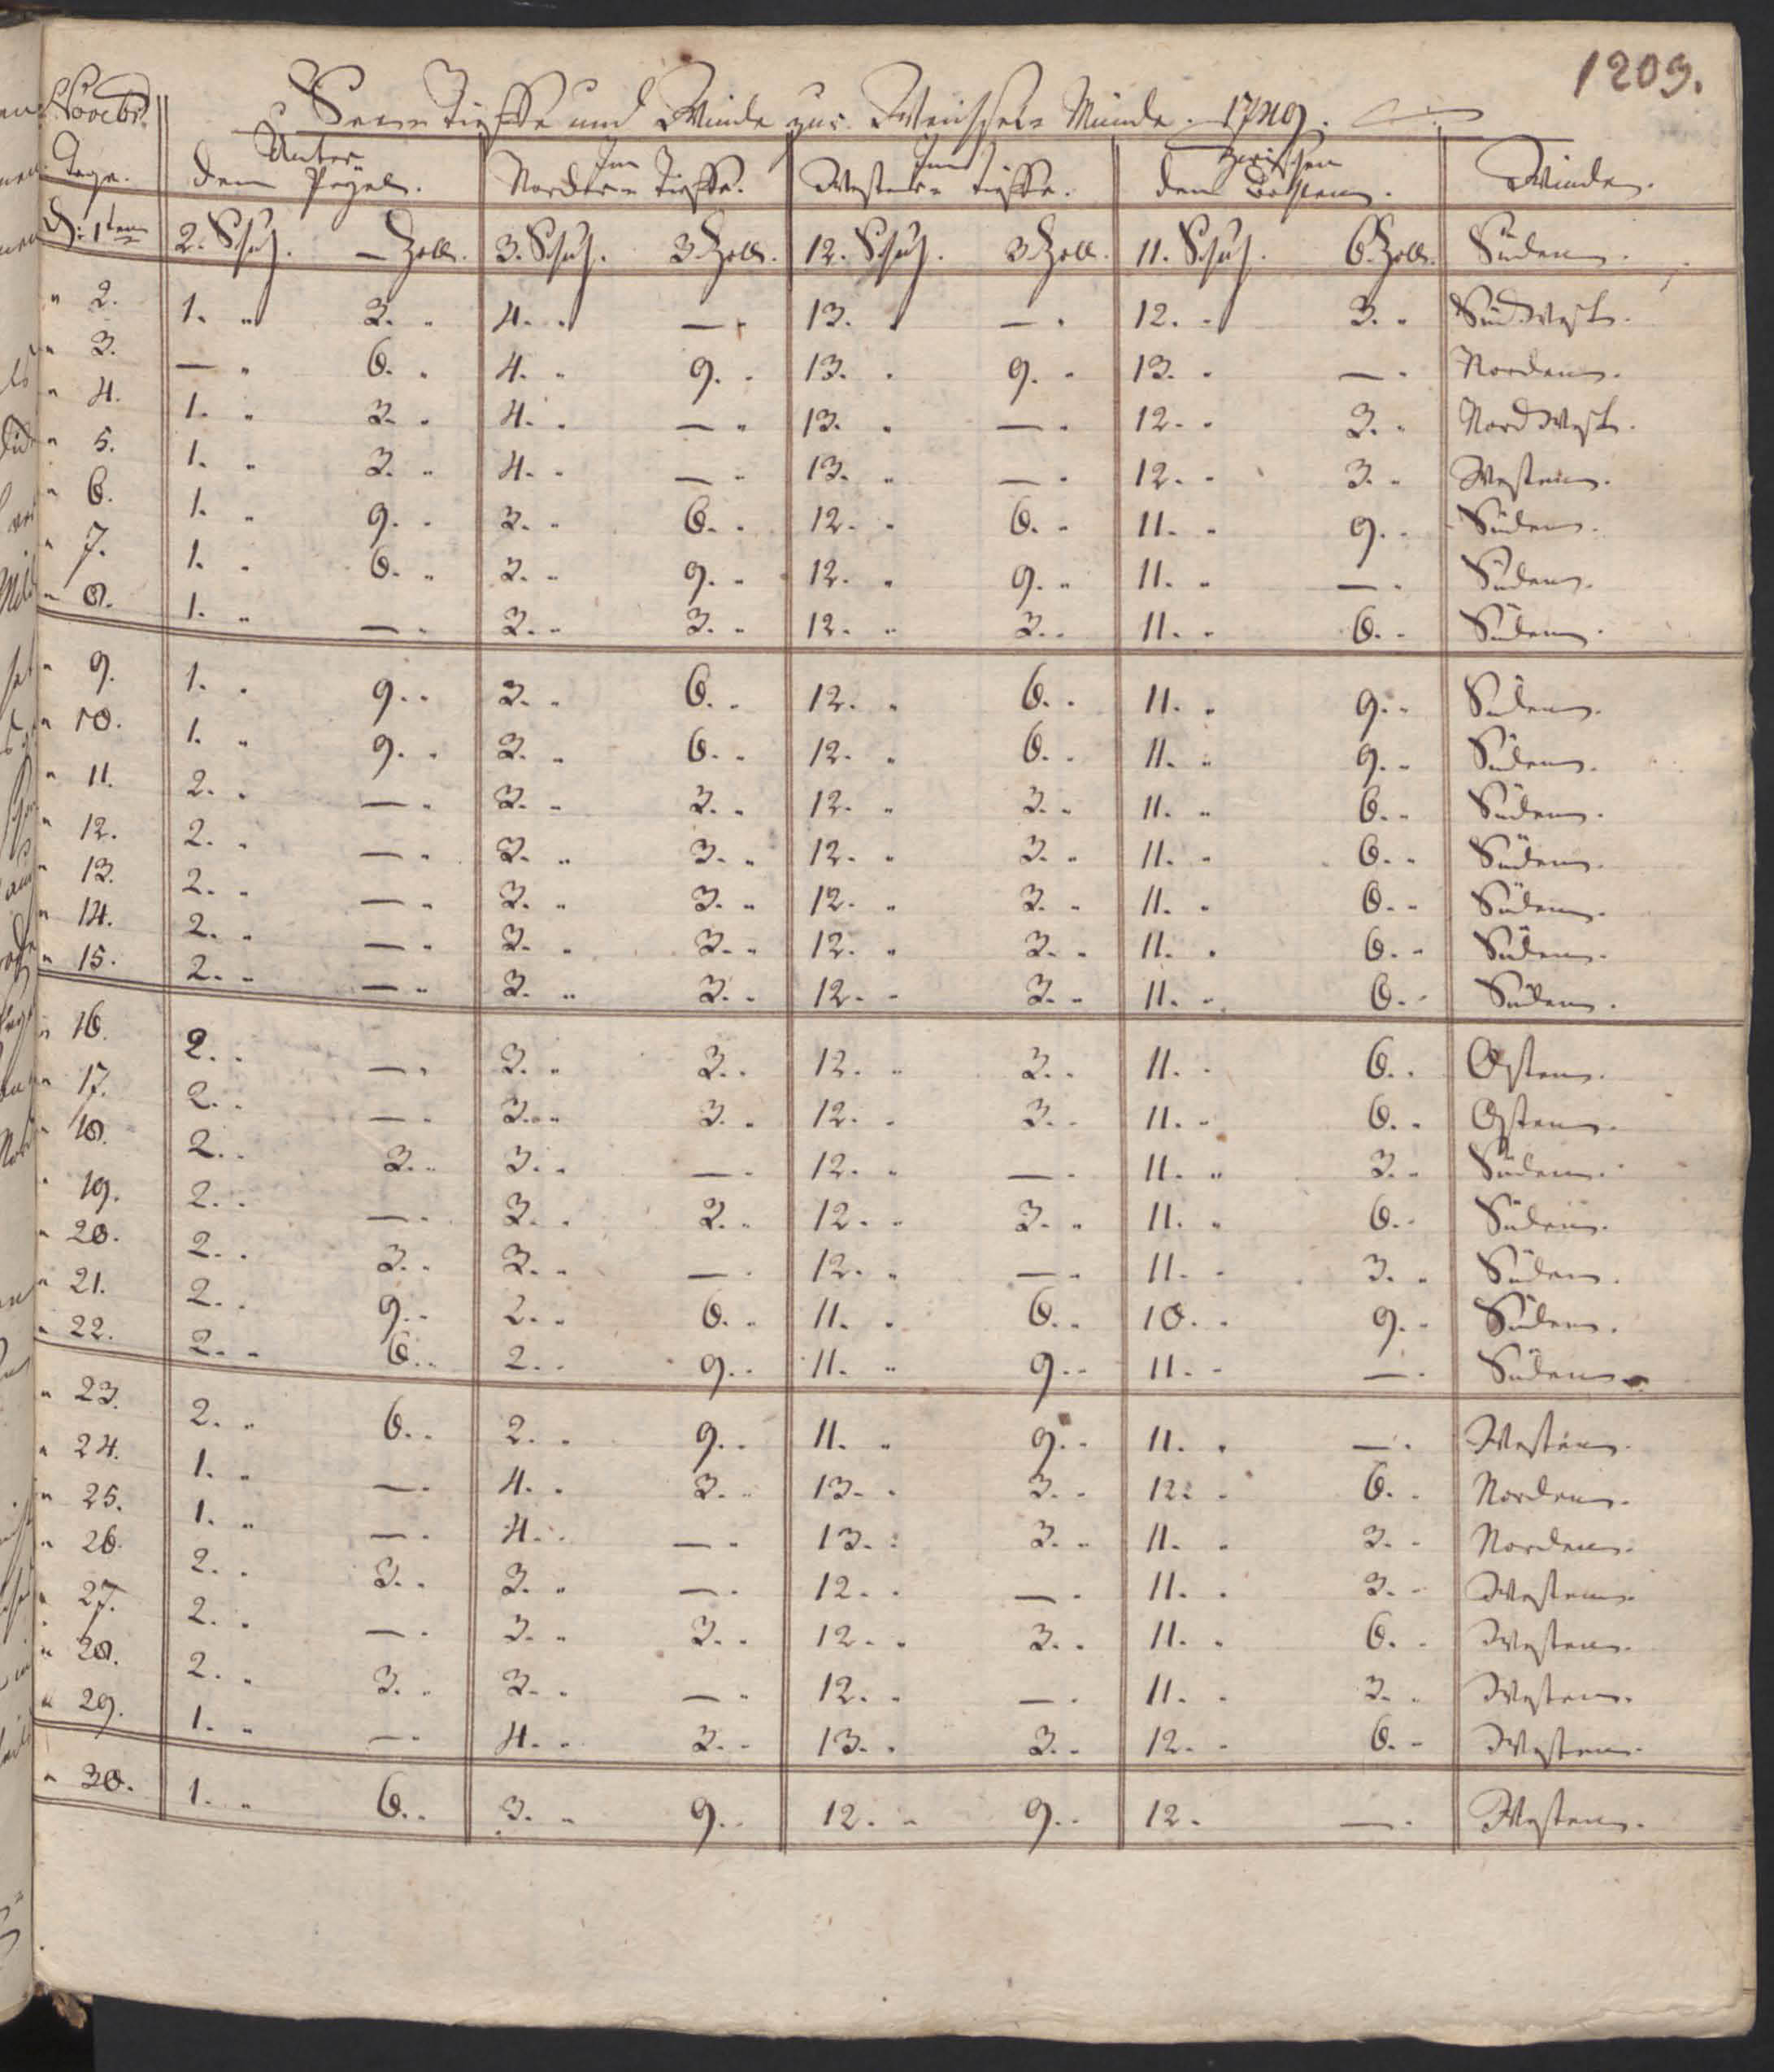 1209.
Novebr.
See= Tieffe und Winde zur Weissel= Münde. 1749.
Tage. Unter dem Pegel. Im Norder= Tieffe. Im Wester= tieffe. Zwischen den Winden.
d: 1ten 2. Schuh. — Zoll. 3. Schuh. 3 Zoll. 12. Schuh. 3 Zoll. 11. Schuh. 6. Zoll. Süden.
" 2. 1. " 3. " 4. " — " 13. " — " 12. " 3. " SüdWest.
" 3. — " 6. " 4. " 9. " 13. " 9. " 13. " — " Norden.
" 4. 1. " 3. " 4. " — " 13. " — " 12. " 3. " NordWest.
" 5. 1. " 3. " 4. " — " 13. " — " 12. " 3. " Westen.
" 6. 1. " 9. " 3. " 6. " 12. " 6. " 11. " 9. " Süden.
" 7. 1. " 6. " 3. " 9. " 12. " 9. " 11. " — " Süden.
" 8. 1. " — " 3. " 3. " 12. " 3. " 11. " 6. " Süden.
" 9. 1. " 9. " 3. " 6. " 12. " 6. " 11. " 9. " Süden.
" 10. 1. " 9. " 3. " 6. " 12. " 6. " 11. " 9. " Süden.
" 11. 2. " — " 3. " 3. " 12. " 3. " 11. " 6. " Süden.
" 12. 2. " — " 3. " 3. " 12. " 3. " 11. " 6. " Süden.
" 13. 2. " — " 3. " 3. " 12. " 3. " 11. " 6. " Süden.
" 14. 2. " — " 3. " 3. " 12. " 3. " 11. " 6. " Süden.
" 15. 2. " — " 3. " 3. " 12. " 3. " 11. " 6. " Süden.
" 16. 2. " — " 3. " 3. " 12. " 3. " 11. " 6. " Osten.
" 17. 2. " — " 3. " 3. " 12. " 3. " 11. " 6. " Osten.
" 18. 2. " 3. " 3. " — " 12. " — " 11. " 3. " Süden.
" 19. 2. " — " 3. " 3. " 12. " 3. " 11. " 6. " Süden.
" 20. 2. " 3. " 3. " — " 12. " — " 11. " 3. " Süden.
" 21. 2. " 9. " 2. " 6. " 11. " 6. " 10. " 9. " Süden.
" 22. 2. " 6. " 2. " 9. " 11. " 9. " 11. " — " Süden.
" 23. 2. " 6. " 2. " 9. " 11. " 9. " 11. " — " Westen.
" 24. 1. " — " 4. " 3. " 13. " 3. " 12. " 6. " Norden.
" 25. 1. " — " 4. " — " 13. " 3. " 11. " 3. " Norden.
" 26. 2. " 3. " 3. " — " 12. " — " 11. " 3. " Westen.
" 27. 2. " — " 3. " 3. " 12. " 3. " 11. " 6. " Westen.
" 28. 2. " 3. " 3. " — " 12. " — " 11. " 3. " Westen.
" 29. 1. " — " 4. " 3. " 13. " 3. " 12. " 6. " Westen.
" 30. 1. " 6. " 3. " 9. " 12. " 9. " 12. — " Westen.